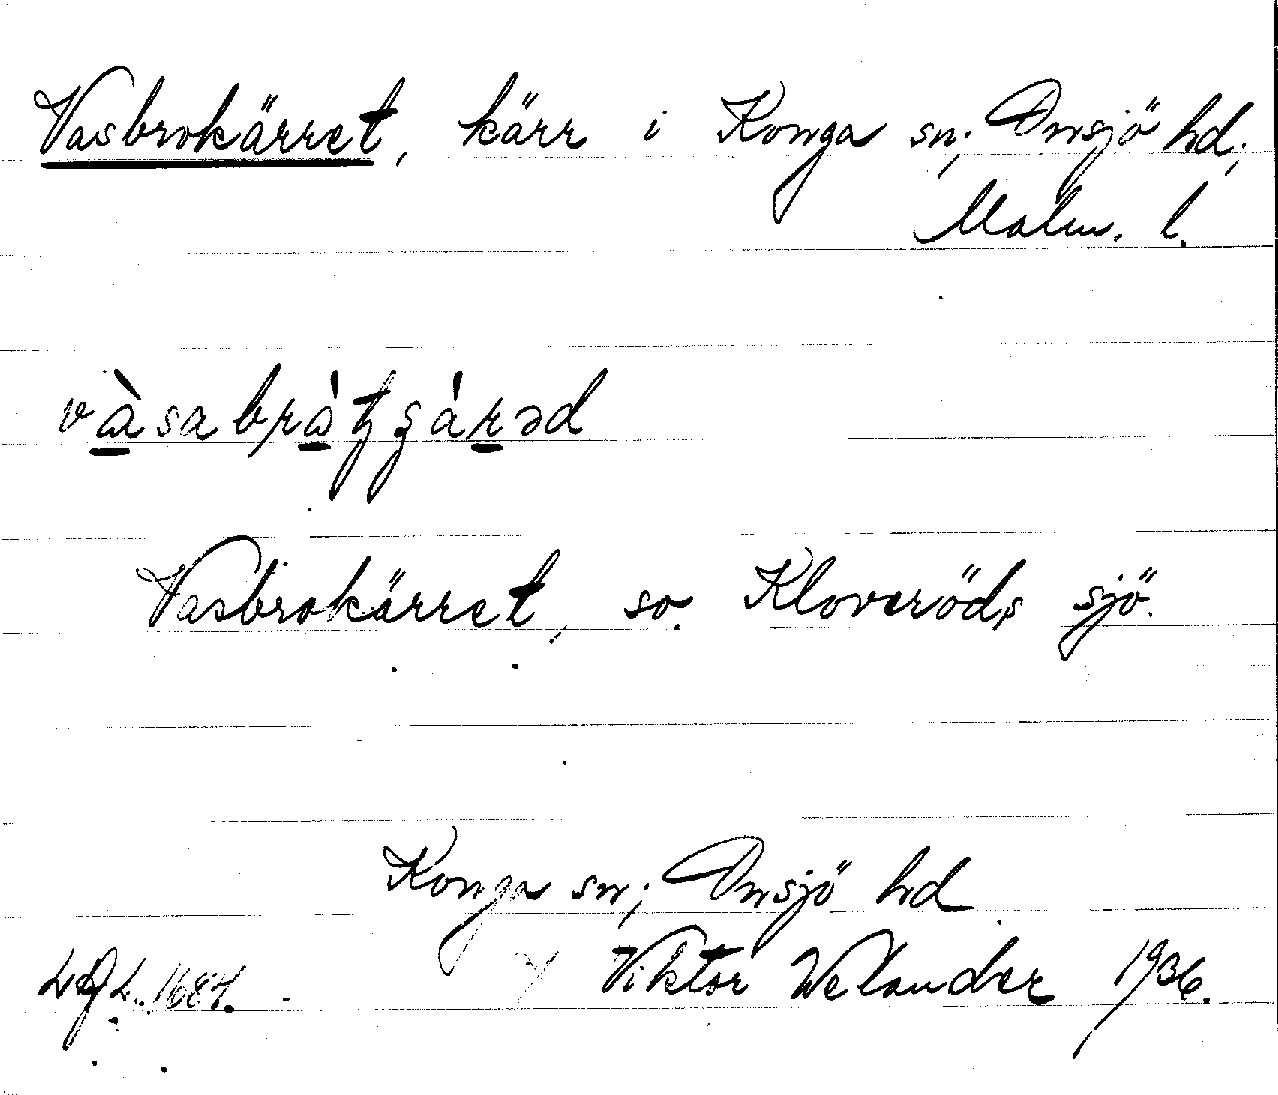 Vasbrokärret, kärr i Konga sn, Onsjö hd,
Malm. l.
vàsabràtgárəd
Vasbrokärret, so. Kloveröds sjö.
Konga sn, Onsjö hd
Viktor Welander 1936.